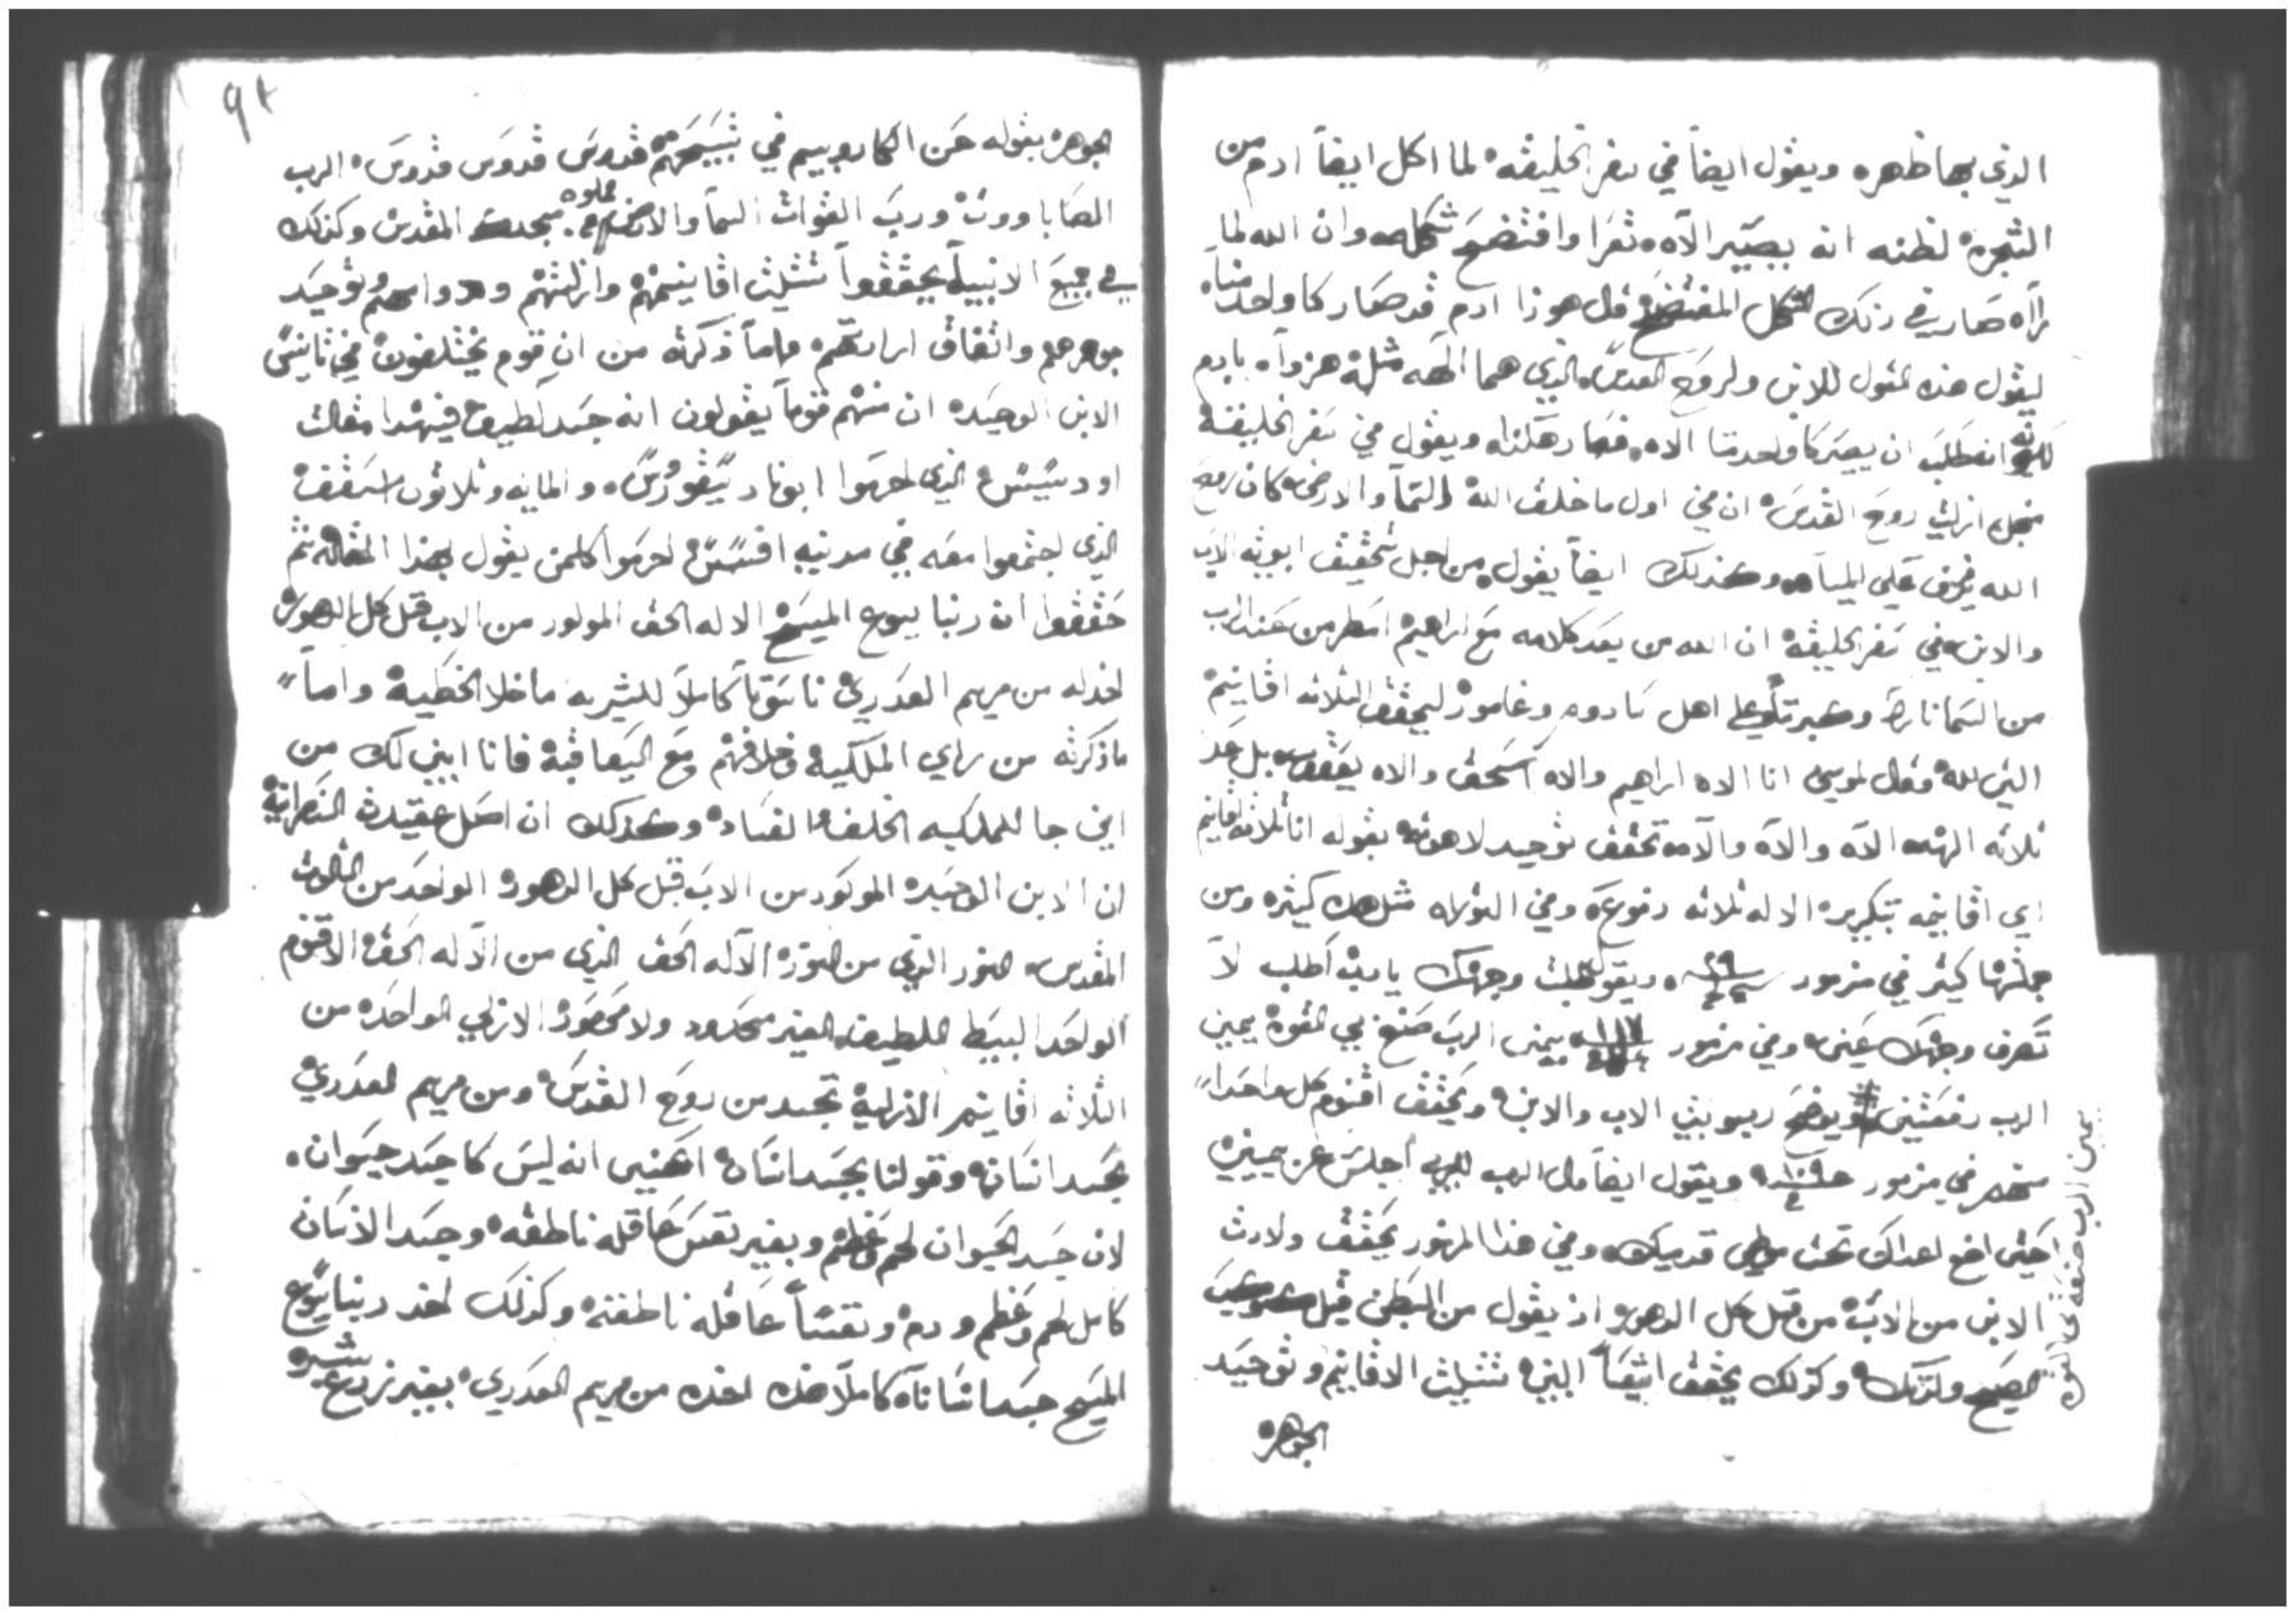 الذي بها ظهره ويقول ايضاً في سفر الخليقه لما اكل ايضاً ادم من
الشجره لظنه انه بيصير الآه تعرا وافتضح شكله وان الله لما
رآه صار في ذلك الشكل المفتضح قال هوذا ادم قد صار كاواحد منا
ليقول هذه القول للابن ولروح القدس الذي هما الهه مثله هزوآه بادم
لانه طلب ان يصير كاواحد منا الاه فصار هكذاه ويقول في سفر الخليقه
من ازلية روح القدس ان في اول ما خلق الله السمآ والارض كان روح
الله يرف علي المياه وكذلك ايضاً يقول من اجل تحقيق ابوية الاب
والابن في سفر الخليقه ان الله من بعد كلامه مع ابراهيم امطر من عند الرب
من السما نار وكبريت علي اهل سادوم وغامور ليحقق الثلاثه اقانيم
الذي لله وقال لموسي انا الاه ابراهيم والاه اسحق والاه يعقوب بل
ثلاثه الهه الاه والاه والاه تحقق توحيد لاهوته بقوله انا ثلاثه اقانيم
اي اقانيمه بتكريره الاله ثلاثه دفوع وفي التوراه مثل هذه كثيره ومن
جملتها كثير في مزمور ٢٩ ويقول طلبت وجهك يا رب اطلب لا
تصرف وجهك عني وفي مزمور ١١٧ يمين الرب صنع بي القوه يمين
الرب رفعتني ويوضح ربوبية الاب والابن ويحقق اقنوم كل واحداً
منهم في مزمور ١٠٩ ويقول ايضاً قال الرب لربي اجلس عن يميني
حتي اضع اعداك تحت موطي قدميك وفي هذا المزمور يحقق ولادة
الابن من الاب من قبل كل الدهور اذ يقول من البطن قبل كوكب
الصبح ولدتك وكذلك يحقق ايضاً النبي تثليث الاقانيم وتوحيد
الجوهره
يمين الرب صنعة بي القوه
٩٢
الجوهره بقوله عن الكاروبيم في تسبيحهم قدوس قدوس قدوس الرب
الصاباووت ورب القوات السمآ والارض مملوه مجدك المقدس وكذلك
في جميع الانبيآ يحققوا تثليث اقانيمهم وازليتهم ودوامهم وتوحيد
جوهرهم واتفاق ارادتهم واماً ذكرته من ان قوم يختلفون في ثانيس
الابن الوحيده ان منهم قوماً يقولون انه جسد لطيف فيهدا مقالة
اودسيس الذي احرموا ابونا ديسقورس والمايه وثلاثون اسقف
الذي اجتمعوا معه في مدينه افسس احرموا كلمن يقول بهذا المقاله ثم
حققوا ان ربنا يسوع المسيح الاله الحق المولود من الاب قبل كل الدهور
اخد له من مريم العدري ناسوتاً كاملاً للبشريه ما خلا الخطيه واما
ما ذكرته من راي الملكيه وخلافهم مع اليعاقبه فانا ابين لك من
اين جا للملكيه الخلف الفساده وكذلك ان اصل عقيدة النصرانيه
ان الابن الوحيده المولود من الاب قبل كل الدهور الواحد من الثالوث
المقدس النور الذي من النور الاله الحق الذي من الاله الحق الاقنوم
الواحد البسيط اللطيف الغير محدود ولا محصور الازلي الواحده من
الثلاثه اقانيم الازليه تجسد من روح القدس ومن مريم العدري
بجسد انسان وقولنا بجسد انسان اعني انه ليس كا جسد حيوان
لان جسد الحيوان لحم وعظم وبغير نفس عاقله ناطقه وجسد الانسان
كامل لحم وعظم ودم ونفساً عاقله ناطقه وكذلك اخد ربنا يسوع
المسيح جسد انساناً كاملاً هذه اخده من مريم العدري بغير زرع بشر